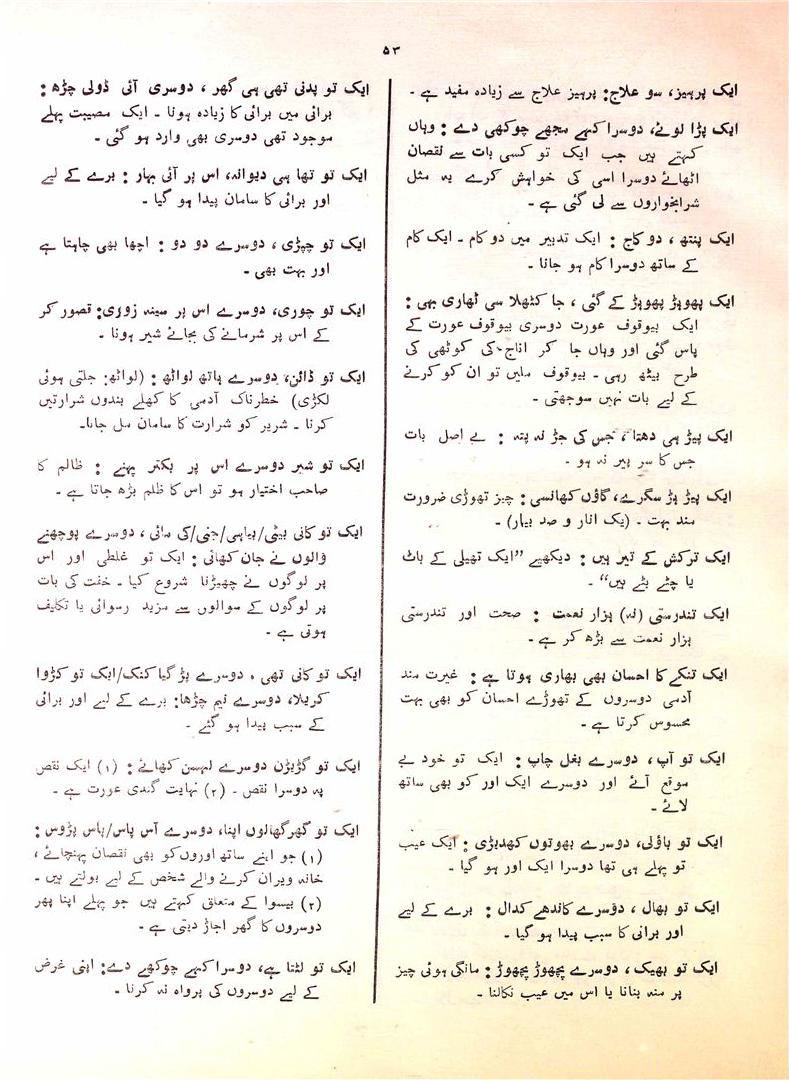 ۵۳
ایک پرہیز، سو علاج: پرہیز علاج سے زیادہ مفید ہے ۔
ایک پڑا لوٹے، دوسرا کہے مجھے چوکھی دے : وہاں
کہتے ہیں جب ایک تو کسی بات سے نقصان
اٹھائے دوسرا اسی کی خواہش کرے یہ مثل
شرابخواروں سے لی گئی ہے ۔
ایک پنتھ ، دو کاج : ایک تدبیر میں دو کام ۔ ایک کام
کے ساتھ دوسرا کام ہو جانا ۔
ایک پھوہڑ پھوہڑ کے گئی ، جا کٹھلا سی ٹھاری بھی :
ایک بیوقوف عورت دوسری بیوقوف عورت کے
پاس گئی اور وہاں جا کر اناج کی کوٹھی کی
طرح بیٹھ رہی ۔ بیوقوف ملیں تو ان کو کرنے
کے لیے بات نہیں سوجھتی ۔
ایک پیڑ ہی دھتا ، جس کی جڑ نہ پتہ : بے اصل بات
جس کا سر پیر نہ ہو ۔
ایک پیڑ ہڑ سگرے، گاؤں کھانسی : چیز تھوڑی ضرورت
مند بہت ۔ (یک انار و صد بیمار) ۔
ایک ترکش کے تیر ہیں : دیکھیے ”ایک تھیلی کے باٹ
یا چٹے بٹے ہیں“ ۔
ایک تندرستی (نہ) ہزار نعمت : صحت اور تندرستی
ہزار نعمت سے بڑھ کر ہے ۔
ایک تنکے کا احسان بھی بھاری ہوتا ہے : غیرت مند
آدمی دوسروں کے تھوڑے احسان کو بھی بہت
محسوس کرتا ہے ۔
ایک تو آپ ، دوسرے بغل چاپ : ایک تو خود بے
موقع آئے اور دوسرے ایک اور کو بھی ساتھ
لائے ۔
ایک تو باؤلی، دوسرے بھوتوں کھدیڑی : ایک عیب
تو پہلے ہی تھا دوسرا ایک اور ہو گیا ۔
ایک تو بھال ، دوسرے کاندھے کدال : برے کے لیے
اور برائی کا سبب پیدا ہو گیا ۔
ایک تو بھیک ، دوسرے پچھوڑ پچھوڑ : مانگی ہوئی چیز
پر منہ بنانا یا اس میں عیب نکالنا ۔
ایک تو پدنی تھی ہی گھر ، دوسری آئی ڈولی چڑھ :
برائی میں برائی کا زیادہ ہونا ۔ ایک مصیبت پہلے
موجود تھی دوسری بھی وارد ہو گئی ۔
ایک تو تھا ہی دیوانہ، اس پر آئی بہار : برے کے لیے
اور برائی کا سامان پیدا ہو گیا ۔
ایک تو چپڑی ، دوسرے دو دو : اچھا بھی چاہتا ہے
اور بہت بھی ۔
ایک تو چوری، دوسرے اس پر سینہ زوری: قصور کر
کے اس پر شرمانے کی بجائے شیر ہونا ۔
ایک تو ڈائن، دوسرے ہاتھ لواٹھ : (لواٹھ: جلتی ہوئی
لکڑی) خطرناک آدمی کا کھلے بندوں شرارتیں
کرنا ۔ شریر کو شرارت کا سامان مل جانا۔
ایک تو شیر دوسرے اس پر بکتر پہنے : ظالم کا
صاحب اختیار ہو تو اس کا ظلم بڑھ جاتا ہے ۔
ایک تو کانی بیٹی/بیاہی/جنی/کی مائی ، دوسرے پوچھنے
والوں نے جان کھائی : ایک تو غلطی اور اس
پر لوگوں نے چھیڑنا شروع کیا ۔ خفت کی بات
پر لوگوں کے سوالوں سے مزید رسوائی یا تکلیف
ہوتی ہے ۔
ایک تو کانی تھی ، دوسرے پڑ گیا کنک/ایک تو کڑوا
کریلا، دوسرے نیم چڑھا: برے کے لیے اور برائی
کے سبب پیدا ہو گئے ۔
ایک تو گڑبڑن دوسرے لہسن کھائے : (۱) ایک نقص
پہ دوسرا نقص ۔ (۲) نہایت گندی عورت ہے ۔
ایک تو گھر گھالوں اپنا، دوسرے آس پاس/پاس پڑوس :
(۱) جو اپنے ساتھ اوروں کو بھی نقصان پہنچائے ،
خانہ ویران کرنے والے شخص کے لیے بولتے ہیں ۔
(۲) بیسوا کے متعلق کہتے ہیں جو پہلے اپنا پھر
دوسروں کا گھر اجاڑ دیتی ہے ۔
ایک تو لٹتا ہے، دوسرا کہے چوکھے دے: اپنی غرض
کے لیے دوسروں کی پرواہ نہ کرنا ۔